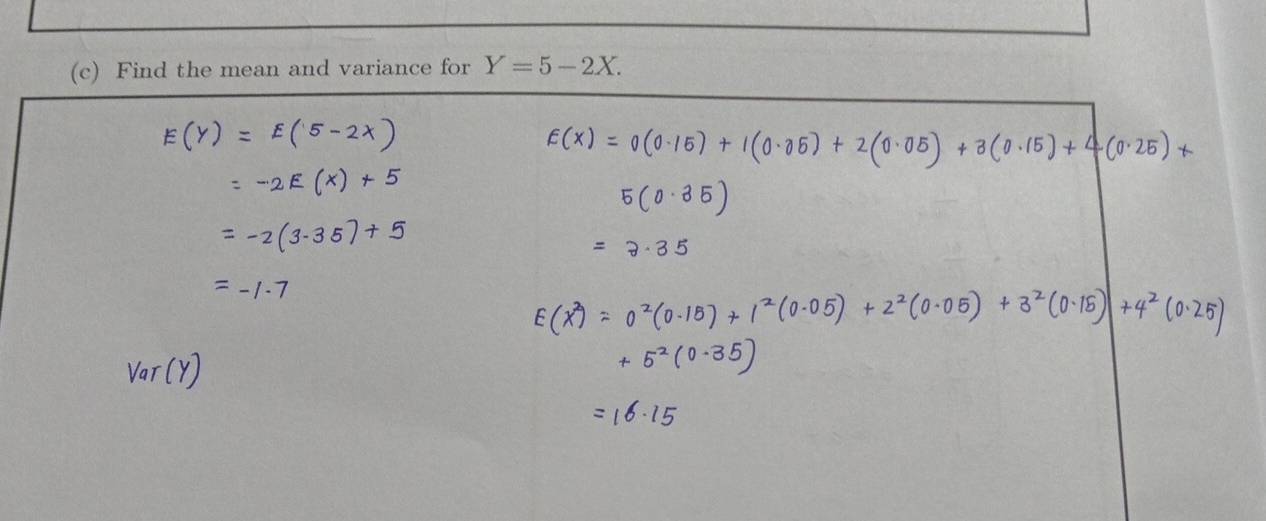 (c) Find the mean and variance for Y = 5 − 2X.
E(Y) = E(5 - 2X)
= -2E(X) + 5
= -2(3.35) + 5
= -1.7
Var(Y)
E(X) = 0(0.15) + 1(0.05) + 2(0.05) + 3(0.15) + 4(0.25) +
5(0.35)
= 3.35
E(X²) = 0²(0.15) + 1²(0.05) + 2²(0.05) + 3²(0.15) + 4²(0.25)
+ 5²(0.35)
= 16.15